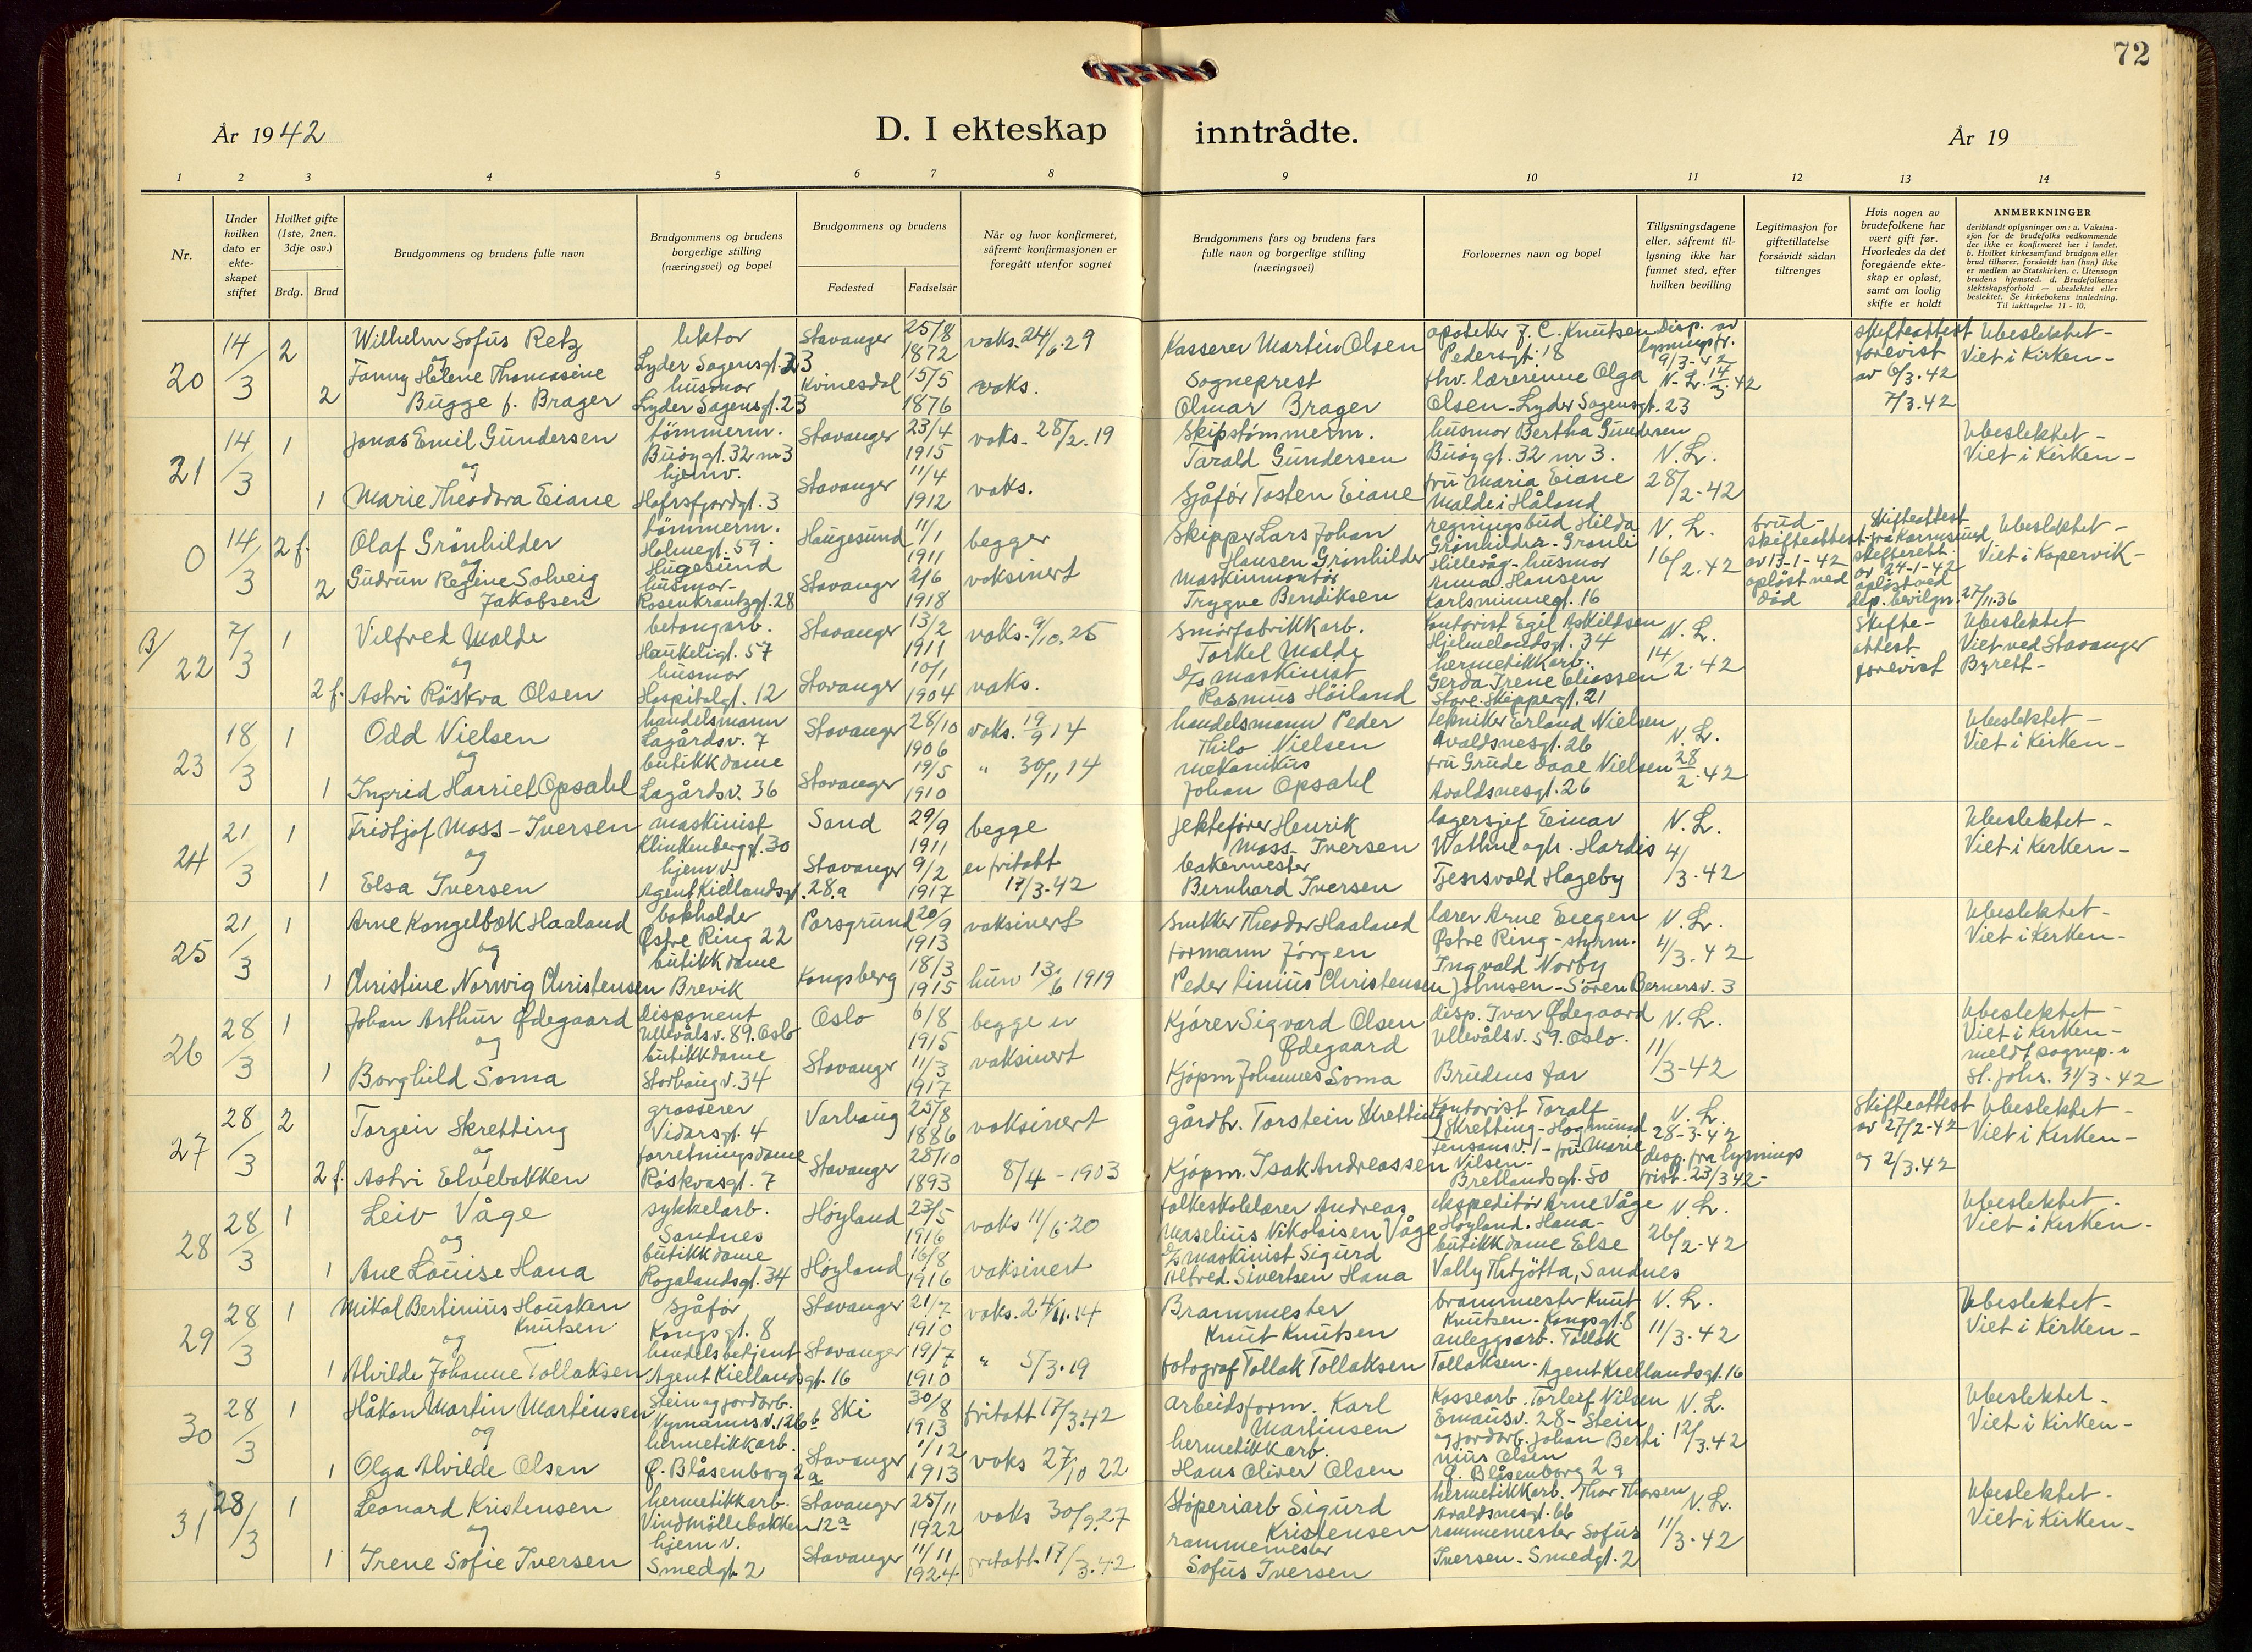 72
År 1942
D. I ekteskap inntrådte.
År 19
1 2 3 4 5 6 7 8 9 10 11 12 13 14
Nr.
Under hvilken dato er ekteskapet stiftet
Hvilket gifte (1ste, 2nen, 3dje osv.)
Brdg. Brud
Brudgommens og brudens fulle navn
Brudgommens og brudens borgerlige stilling (næringsvei) og bopel
Brudgommens og brudens
Fødested Fødselsår
Når og hvor konfirmeret, såfremt konfirmasjonen er foregått utenfor sognet
Brudgommens fars og brudens fars fulle navn og borgerlige stilling (næringsvei)
Forlovernes navn og bopel
Tillysningsdagene eller, såfremt tillysning ikke har funnet sted, efter hvilken bevilling
Legitimasjon for giftetillatelse forsåvidt sådan tiltrenges
Hvis nogen av brudefolkene har vært gift før. Hvorledes da det foregående ekteskap er opløst, samt om lovlig skifte er holdt
ANMERKNINGER
deriblandt oplysninger om: a. Vaksinasjon for de brudefolks vedkommende der ikke er konfirmeret her i landet. b. Hvilket kirkesamfund brudgom eller brud tilhører, forsåvidt han (hun) ikke er medlem av Statskirken. c. Utensogn brudens hjemsted. d. Brudefolkenes slektskapsforhold — ubeslektet eller beslektet. Se kirkebokens innledning. Til iakttagelse 11 - 10.
20 14/3 2 Wilhelm Sofus Retz lektor Lyder Sagensgt. 23 Stavanger 25/8 1872 vaks. 24/6.29
og
2 Fanny Helene Thomasine Bugge f. Brager husmor Lyder Sagensgt. 23 Kvinesdal 15/5 1876 vaks.
Kasserer Martin Olsen
Sogneprest Olmar Brager
apoteker J. C. Knutsen Pedersgt. 18
fhv. lærerinne Olga Olsen - Lyder Sagensgt. 23
Disp. av lysningsfr. 9/3-42 N. L. 14/3.42
skifteattest forevist av 6/3.42 7/3.42
Ubeslektet - Viet i Kirken -
21 14/3 1 Jonas Emil Gundersen tömmerm. Buöygt. 32 nr 3 Stavanger 23/4 1915 vaks. 28/2.19
og
1 Marie Theodora Eiane hjemv. Hafrsfjordgt. 3 Stavanger 11/4 1912 vaks.
Skipstömmerm. Tarald Gundersen
Sjåför Tosten Eiane
husmor Bertha Gundersen Buöygt. 32 nr 3.
fru Maria Eiane Malde i Håland
N. L. 28/2-42
Ubeslektet - Viet i Kirken -
0 14/3 2 f. Olaf Grönhilder tömmerm. Holmegt. 59 Haugesund 11/1 1911 begger
og
2 Gudrun Regine Solveig Jakobsen husmor - Rosenkrantzgt. 28 Stavanger 2/6 1918 vaksinert
Skipper Lars Johan Hansen Grönhilder
Maskinmontör Trygve Bendiksen
regningsbud Hilda Grönhilder - Granli Hillevåg - husmor
Anna Hansen Karlsminnegt. 16
N. L. 16/2.42
brud - skifteattest av 13-1-42 oplöst ved död
Skifteattest fra Karmsund skifterett av 24-1-42 oplöst ved dep. bevilgn. 27/11.36
Ubeslektet - Viet i Kopervik -
B/ 22 7/3 1 Vilfred Malde betongarb. Haukeligt. 57 Stavanger 13/2 1911 vaks. 9/10.25
og
2 f. Astri Röskva Olsen husmor Hospitalgt. 12 Stavanger 10/1 1904 vaks.
Smörfabrikkarb. Torkel Malde
D/S maskinist Rasmus Höiland
kontorist Egil Askildsen Hjelmelandsgt. 34
hermetikkarb. Gerda Irene Eliassen Store Skippergt. 21
N. L. 14/2.42
Skifteattest forevist
Ubeslektet Viet ved Stavanger Byrett -
23 18/3 1 Odd Nielsen handelsmann Lagårdsv. 7 Stavanger 28/10 1906 vaks. 19/9 14
og
1 Ingrid Harriet Opsahl butikkdame Lagårdsv. 36 Stavanger 19/5 1910 " 30/11 14
handelsmann Peder Thilo Nielsen
mekanikus Johan Opsahl
tekniker Erland Nielsen Avaldsnesgt. 26
fru Grude Daae Nielsen Avaldsnesgt. 26
N. L. 28/2.42
Ubeslektet - Viet i Kirken -
24 21/3 1 Fridtjof Moss-Iversen maskinist Klinkenberggt. 30 Sand 29/9 1911 begge
og
1 Elsa Iversen hjemv. Agent Kiellandsgt. 28.a Stavanger 9/2 1917 er fritatt 17/3.42
jekteförer Henrik Moss-Iversen
bakermester Bernhard Iversen
lagersjef Einar Wathne og fr. Hardis Tjensvold Hageby
N. L. 4/3.42
Ubeslektet - Viet i Kirken -
25 21/3 1 Arne Kongelbæk Haaland bokholder Østre Ring 22 Porsgrund 20/9 1913 vaksinert
og
1 Christine Norwig Christensen butikkdame Brevik Kongsberg 18/3 1915 hun 13/6 1919
Snekker Theodor Haaland
formann Jörgen Peder Linius Christensen
lærer Arne Eiegen Østre Ring - styrm. Ingvald Norby Johnsen - Sören Berners v. 3
N. L. 4/3.42
Ubeslektet - Viet i Kirken -
26 28/3 1 Johan Arthur Ødegaard disponent Ullevålsv. 89. Oslo Oslo 6/8 1915 begge er
og
1 Borghild Soma butikkdame Storhaugv. 34 Stavanger 11/3 1917 vaksinert
Kjörer Sigvard Olsen Ødegaard
Kjöpm Johannes Soma
disp. Ivar Ødegaard Ullevålsv. 59. Oslo.
Brudens far
N. L. 11/3-42
Ubeslektet - Viet i Kirken - meldt sognep. i St. Johs. 31/3-42
27 28/3 2 Torgeir Skretting grosserer Vidarsgt. 4 Varhaug 25/8 1886 vaksinert
og
2 f. Astri Elvebakken forretningsdame Röskvasgt. 7 Stavanger 28/10 1893 8/4-1903
gårdbr. Torstein Skretting
Kjöpm. Isak Andreassen
Kontorist Toralf Skretting - Hogmund Jensens v. 1 - fru Marie Nilsen - Bretlandsgt. 50
N. L. 28-3-42 disp. fra lysningsfrist. 23/3 42 -
Skifteattest av 27/2-42 og 2/3.42
Ubeslektet - Viet i Kirken -
28 28/3 1 Leiv Våge sykkelarb. Sandnes Höyland 23/5 1916 vaks 11/6.20
og
1 Ane Louise Hana butikkdame Rogalandsgt. 34 Höyland 16/8 1916 vaksinert
folkeskolelærer Andreas Maselius Nikolaisen Våge
D/S maskinist Sigurd Alfred. Sivertsen Hana
ekspeditör Arne Våge Höyland. Hana -
butikkdame Else Vally Thtjötta, Sandnes
N. L. 26/2-42
Ubeslektet - Viet i Kirken -
29 28/3 1 Mikal Bertinius Housken Knutsen sjåför Kongsgt. 8 Stavanger 21/7 1910 vaks. 24/11.14
og
1 Alvilde Johanne Tollaksen handelsbetjent Agent Kiellandsgt. 16 Stavanger 19/7 1910 " 5/3.19
Brannmester Knut Knutsen
fotograf Tollak Tollaksen
brannmester Knut Knutsen - Kongsgt. 8
anleggsarb. Tollak Tollaksen - Agent Kiellandsgt. 16
N. L. 11/3.42
Ubeslektet - Viet i Kirken -
30 28/3 1 Håkon Martin Martinsen Stein og jordarb. Nymannsv. 126 b Ski 30/8 1913 fritatt 17/3.42
og
1 Olga Alvilde Olsen hermetikkarb. Ø. Blåsenborg 2 a Stavanger 1/12 1913 voks 27/10 22
arbeidsform. Karl Martinsen
hermetikkarb. Hans Oliver Olsen
Kassearb. Torleif Nilsen Emausv. 28 - Stein og jordarb. Johan Bertinius Olsen Ø. Blåsenborg 2 a
N. L. 12/3.42
Ubeslektet - Viet i Kirken -
31 28/3 1 Leonard Kristensen hermetikkarb. Vindmöllebakken 12 a Stavanger 25/11 1922 voks 30/9.27
og
1 Irene Sofie Iversen hjemv. Smedgt. 2 Stavanger 11/11 1924 fritatt 17/3.42
Stöperiarb Sigurd Kristensen
rammemester Sofus Iversen
hermetikkarb. Thor Thorsen Avaldsnesgt. 66
rammemester Sofus Iversen - Smedgt. 2
N. L. 11/3.42
Ubeslektet - Viet i Kirken -